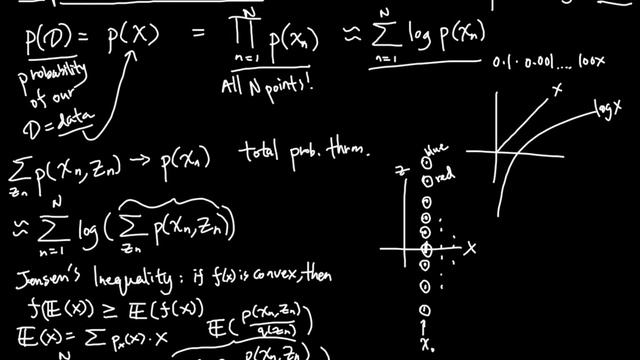 p(D) = p(X) = ∏_{n=1}^{N} p(x_n) ≈ ∑_{n=1}^{N} log p(x_n)
probability
of our
D = data
All N points!
0.1 · 0.001 .... 100x
x
logx
∑_{z_n} p(x_n, z_n) → p(x_n) total prob. thrm.
≈ ∑_{n=1}^{N} log( ∑_{z_n} p(x_n, z_n) )
z
blue
red
x
x_n
Jensen's Inequality : if f(x) is convex, then
f(𝔼(x)) ≥ 𝔼(f(x))
𝔼(x) = ∑ p_x(x) · x 𝔼( p(x_n, z_n) / q(z_n) )
N
p(x_n, z_n)